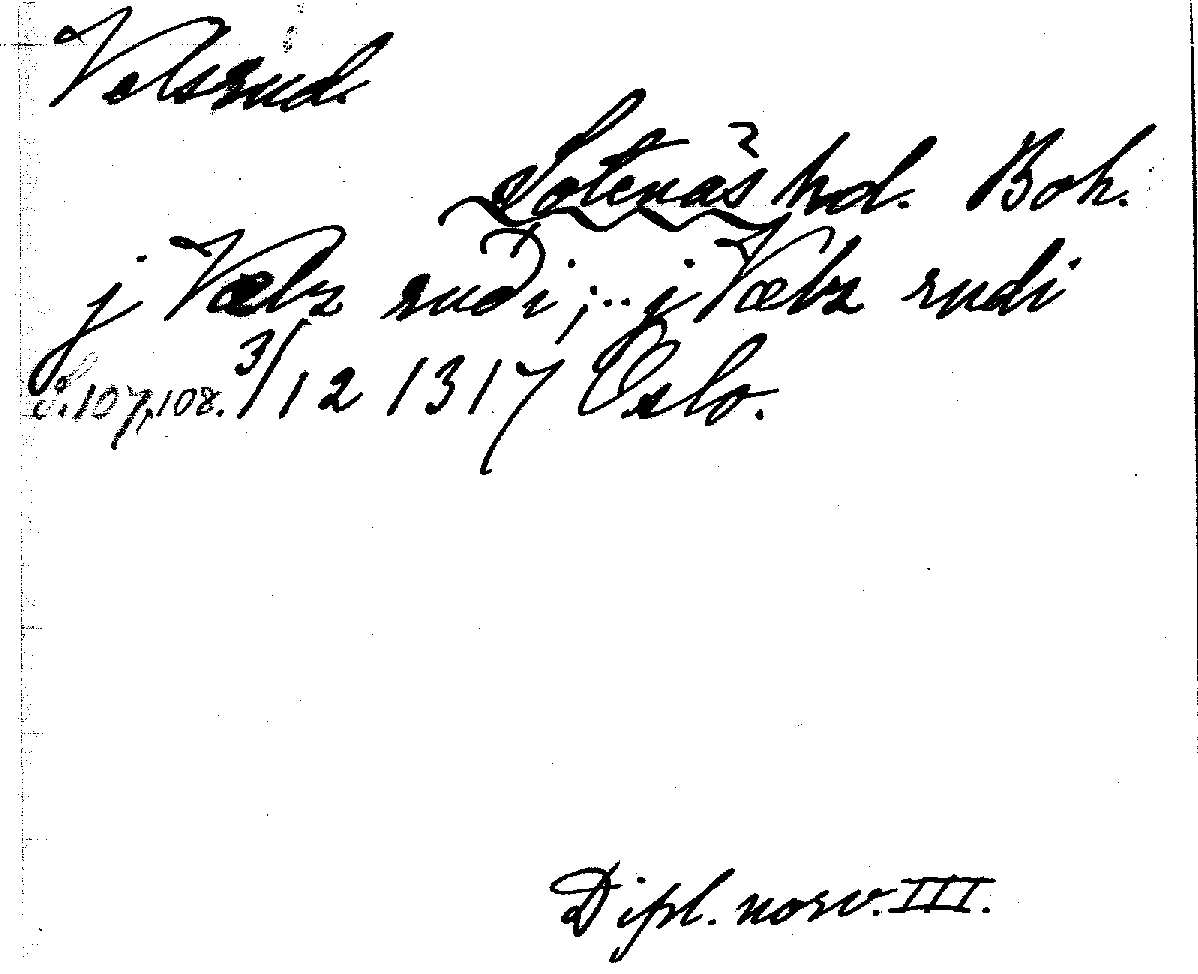 Velsrud.
Sotenäs hd. Boh.
j Vælz ruði; .. j Vælz rudi
S. 107, 108. 3/12 1317 Oslo.
Dipl. norv. III.